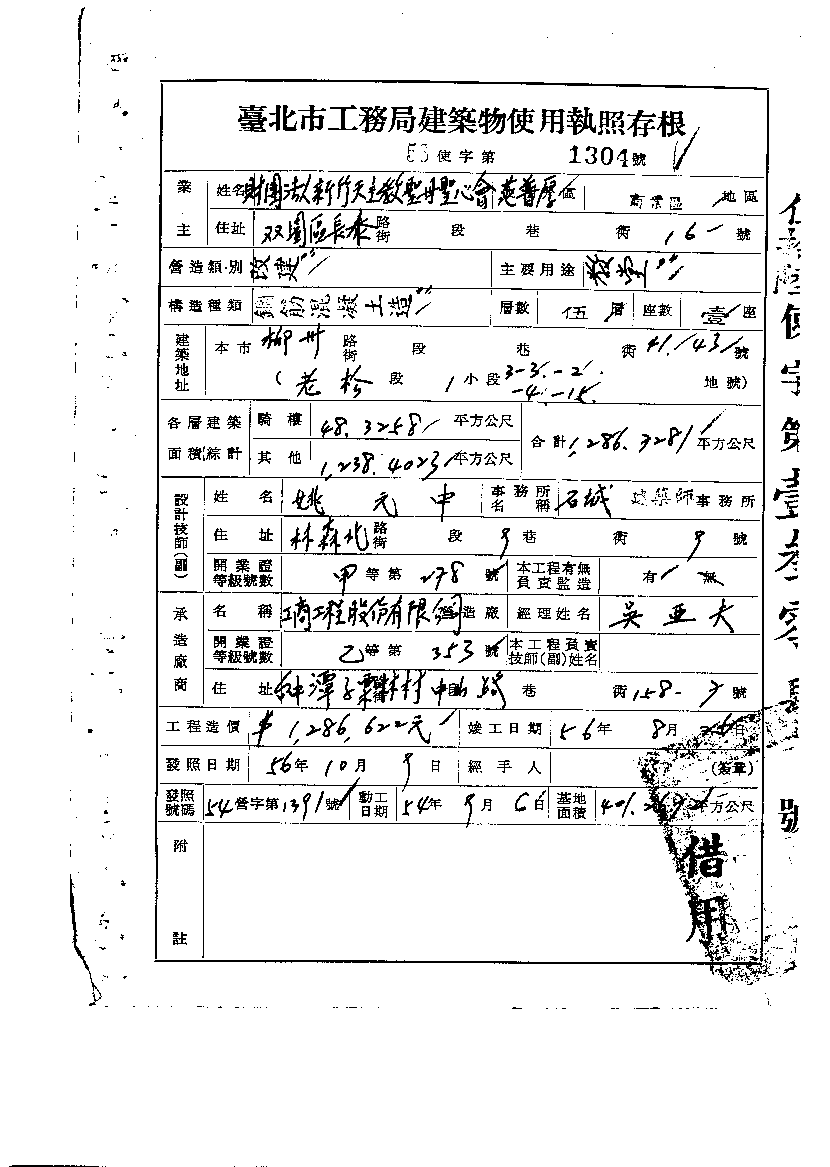 臺北市工務局建築物使用執照存根
使字第 1304號
業主 姓名 財團法人新竹天主教聖母聖心會 區 商業區 地區
住址 双園區長泰 路街 段 巷 衖 16 號
營造類別 改建 主要用途 教堂
構造種類 鋼筋混凝土造 層數 伍 層 座數 壹 座
建築地址 本市 柳州 路街 段 巷 衖 41, 43 號
(老松 段 1 小段 3-3.-2. -4.-15. 地號)
各層建築面積綜計 騎樓 48.3258 平方公尺 合計 1,286.3281 平方公尺
其他 1,238.4023 平方公尺
設計技師(副) 姓名 姚元中 事務所名稱 石城 建築師 事務所
住址 林森北 路街 段 9 巷 衖 9 號
開業證等級號數 甲 等第 278 號 本工程有無負責監造 有 無
承造廠商 名稱 工商工程股份有限公司 營造廠 經理姓名 吳亚夫
開業證等級號數 乙 等第 353 號 本工程負責技師(副)姓名
住址 潭子 村 中山路 巷 衖 158-3 號
工程造價 $1,286,622元 竣工日期 56年 8月 26日
發照日期 56年 10月 9日 經手人 (簽章)
發照號碼 54營字第1391號 動工日期 54年 9月 6日 基地面積 平方公尺
附註
借用
使字第壹叁零 號